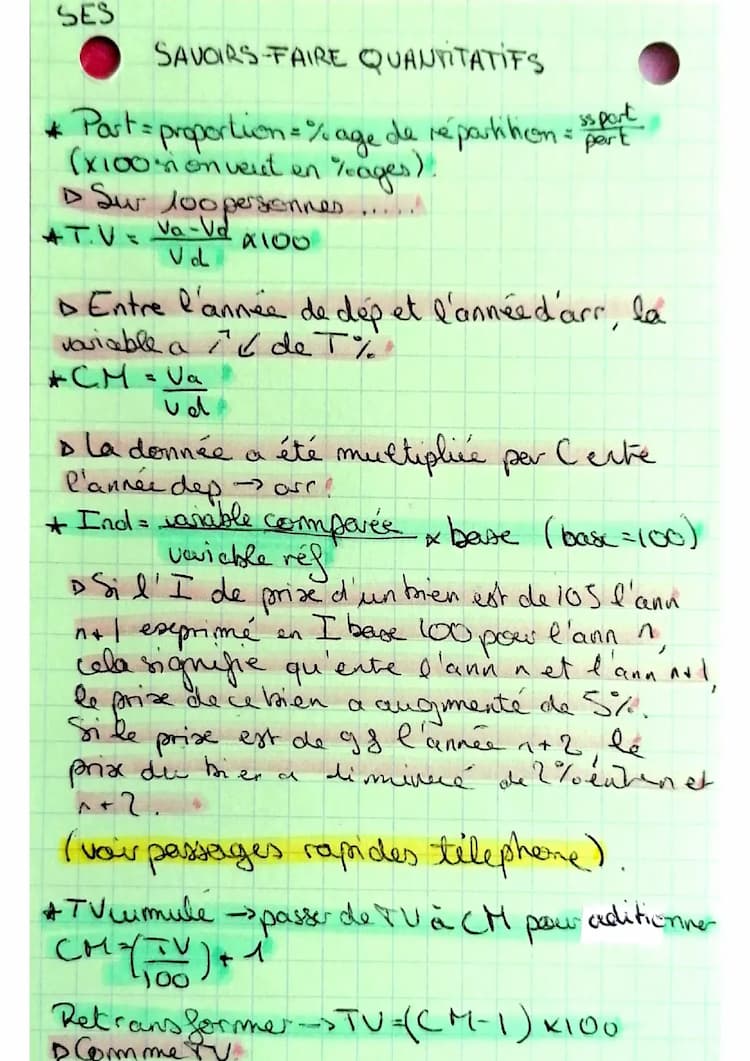 SES
SAVOIRS-FAIRE QUANTITATIFS
* Part = proportion = % age de répartition = sspart/part
(x100 si on veut en %ages).
▷ Sur 100 personnes .....
* T.V = Va-Vd/Vd x100
▷ Entre l'année de dép et l'année d'arr, la
variable a ↗ ↙ de T%
* CM = Va/Vd
▷ La donnée a été multipliée par C entre
l'année dep → arr.
* Ind = variable comparée/variable réf x base (base = 100)
▷ Si l'I de prix d'un bien est de 105 l'ann
n+1 exprimé en I base 100 pour l'ann n,
cela signifie qu'ente l'ann n et l'ann n+1,
le prix de ce bien a augmenté de 5%.
Si le prix est de 98 l'année n+2, le
prix du bien a diminué de 2% entre n et
n+2.
(voir passages rapides téléphone).
* TV cumulé → passer de TV à CM pour aditionner
CM = (TV/100) + 1
Retransformer → TV = (CM-1) x100
▷ Comme TV.